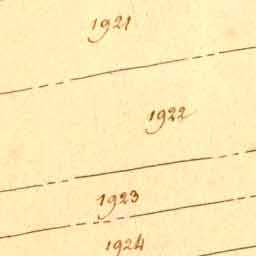 1921
1922
1923
1924